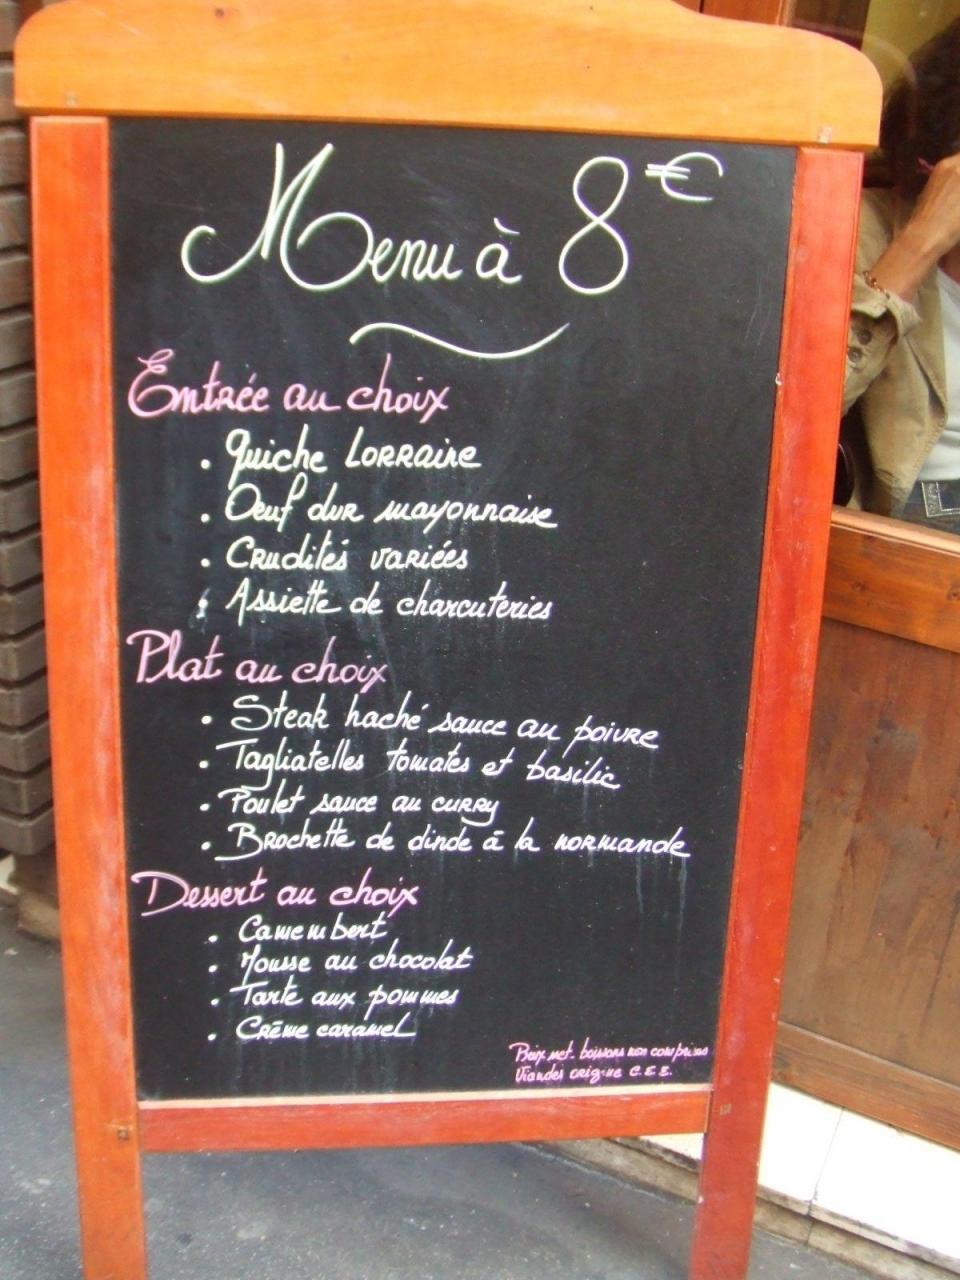 Menu à 8€
Entrée au choix
. Quiche Lorraine
. Oeuf dur mayonnaise
. Crudités variées
. Assiette de charcuteries
Plat au choix
. Steak haché sauce au poivre
. Tagliatelles tomates et basilic
. Poulet sauce au curry
. Brochette de dinde à la normande
Dessert au choix
. Camembert
. Mousse au chocolat
. Tarte aux pommes
. Crème caramel
Prix net. boissons non comprises
Viandes origine C.E.E.